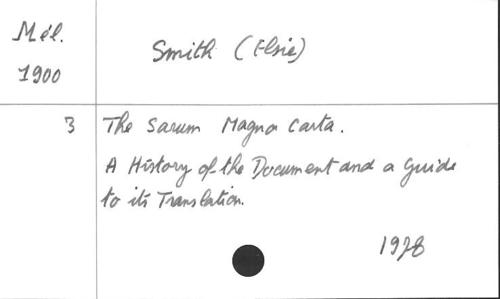 Mél.
1900
Smith (Elsie)
3
The Sarum Magna Carta.
A History of the Document and a Guide
to its Translation.
1978